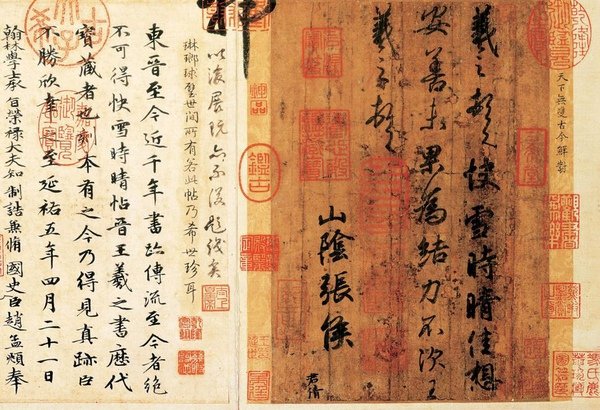 天下無雙古今鮮對
羲之頓首快雪時晴佳想
安善未果為結力不次王
羲之頓首
山陰張侯
君倩
以後展玩亦不復題識矣
琳瑯球璧世間所有若此帖乃希世珍耳
東晉至今近千年書跡傳流至今者絕
不可得快雪時晴帖晉王羲之書歷代
寶藏者也刻本有之今乃得見真跡臣
不勝欣幸之至延祐五年四月二十一日
翰林學士承旨榮祿大夫知制誥兼脩國史臣趙孟頫奉